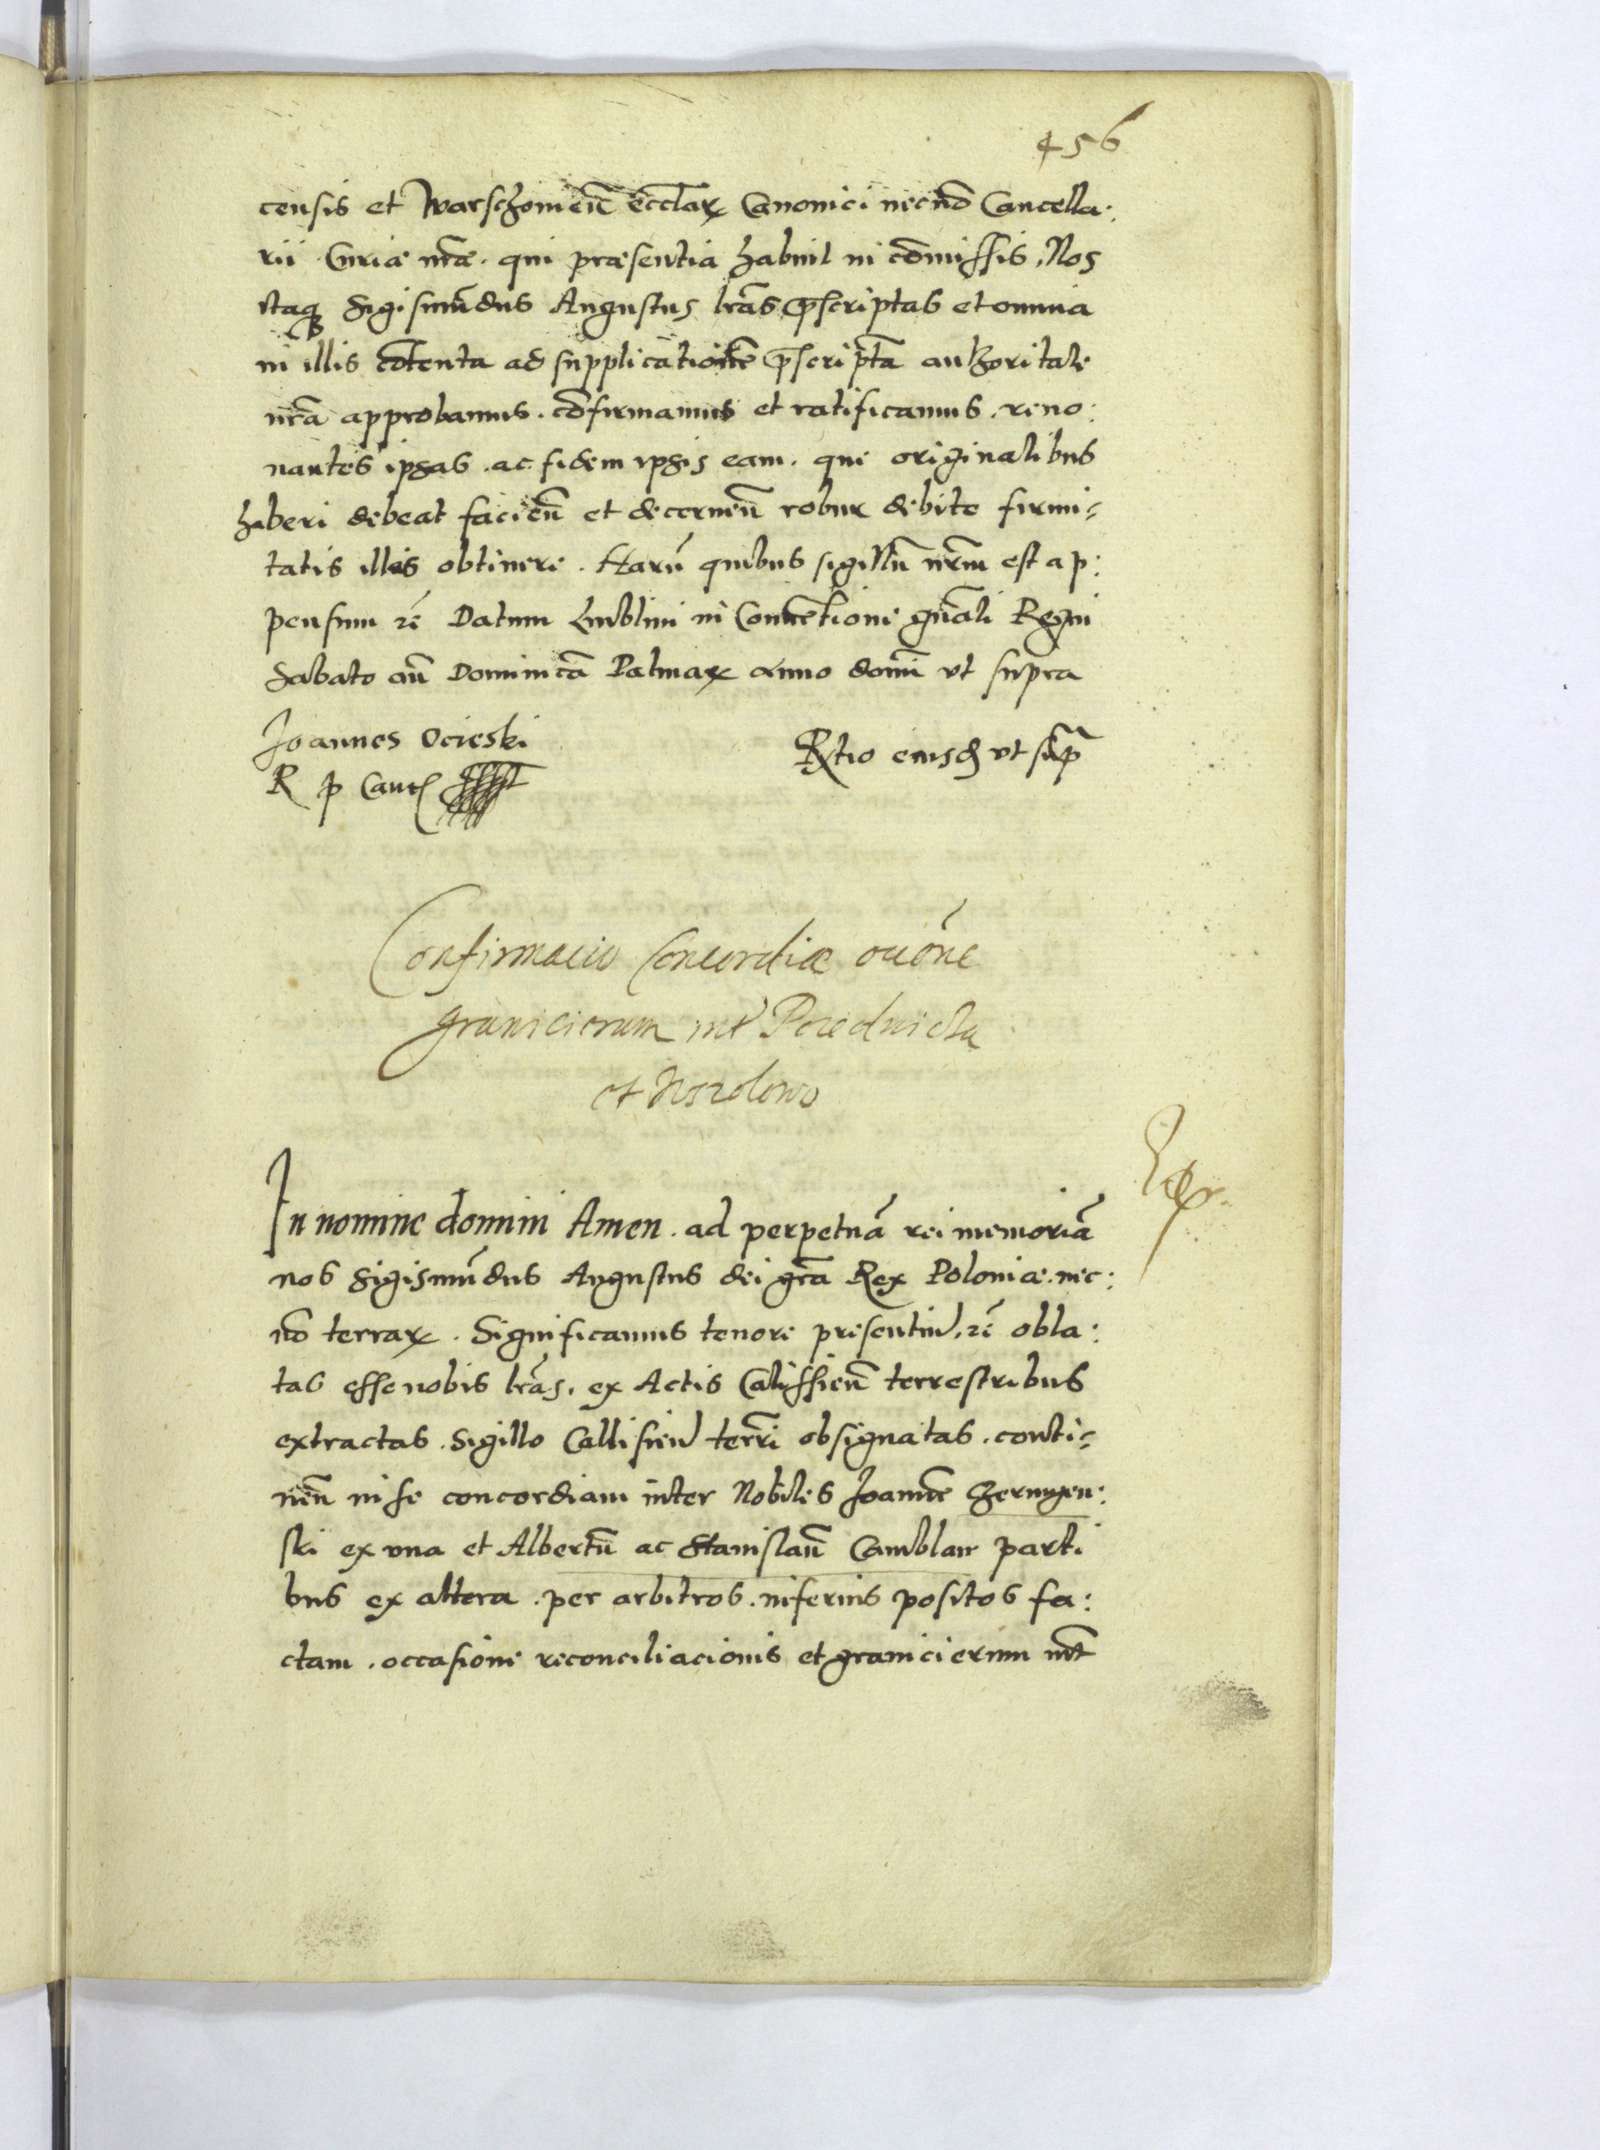 456
censis et Warschouień ecclār Canonici necnō Cancella:
rii Curiæ nr̄æ. qui præsentia habuit in cōmissis. Nos
itaq; Sigismūdus Augustus lrās p̄scriptas et omnia
in illis cōtenta ad supplicationē p̄scriptā authoritate
nr̄a approbamus. cōfirmamus et ratificamus. reno:
uantes ipsas. ac fidem ipsis eam. que originalibus
haberi debeat facień et decerneñ robur debite firmi-
tatis illis obtinere. Harū quibus sigillū nr̄m est ap:
pensum zč Datum Lublini in Conuētione gn̄ali Regni
Sabato añ Dominicā Palmar Anno domi vt supra
Joannes Ocieski
R P Canc
Rtio eiusd vt sup̄
Confirmacio Concordiæ occōne
graniciorum int
et
In nomine domini Amen. ad perpetuā rei memoriā
nos Sigismūdus Augustus dei grā Rex Poloniæ. nec:
nō terrar. Significamus tenore presentiū. zč obla:
tas esse nobis lrās. ex Actis Calissień terrestribus
extractas. Sigillo Callisień terrī obsignatas. conti-
neñ in se concordiam inter Nobiles Joannē
ski ex vna et Albertū ac Stanislaū parti
bus ex altera. per arbitros. inferius positos fa:
ctam. occasione reconciliacionis et granicierum int̄